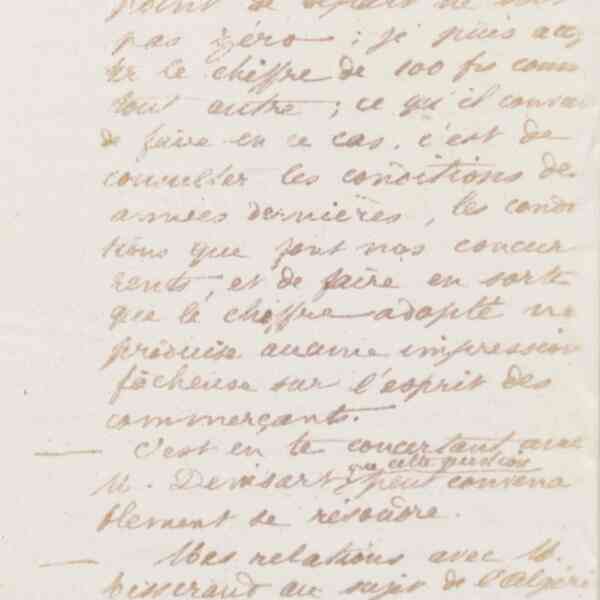 point de départ ne soit
pas zéro ; je puis accep
ter le chiffre de 100 frs comme
tout autre ; ce qu'il convient
de faire en ce cas, c'est de
consulter les conditions des
années dernières, les condi
tions que font nos concur
rents, et de faire en sorte
que le chiffre adopté ne
produise aucune impression
fâcheuse sur l'esprit des
commerçants.
— C'est en te concertant avec
M. Denisart que cette question peut convena
blement se résoudre.
— Mes relations avec M.
Tisserand au sujet de l'Algérie